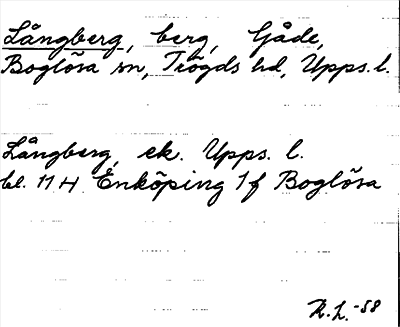 Långberg, berg, Gåde,
Boglösa sn, Trögds hd, Upps. l.
Långberg, ek. Upps. l.
bl. 11 H Enköping 1 f Boglösa
R. L. -58